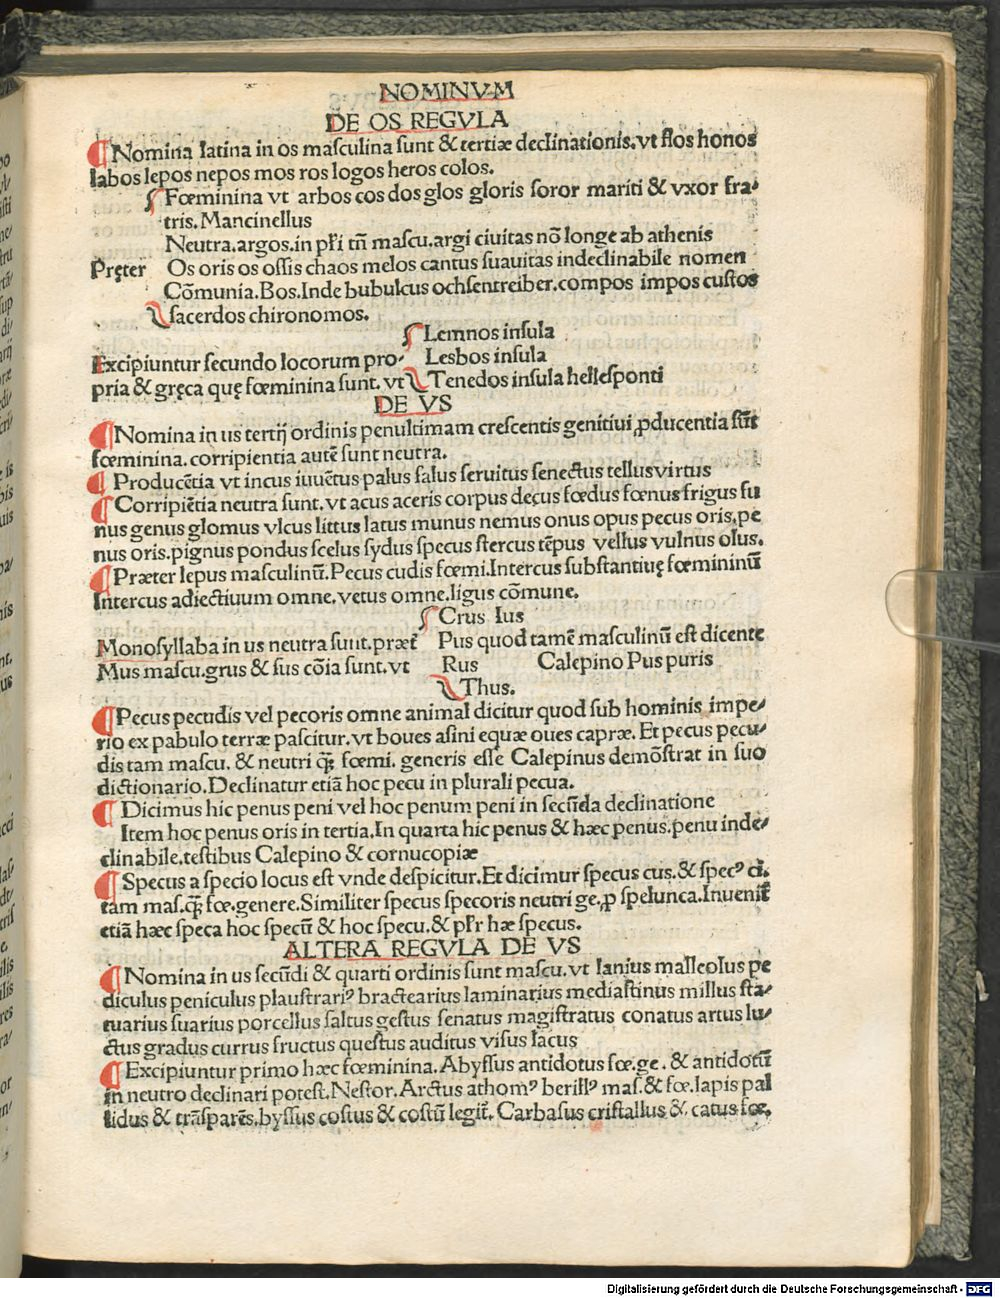 NOMINVM
DE OS REGVLA
¶ Nomina latina in os masculina sunt & tertiæ declinationis. vt flos honos
labos lepos nepos mos ros logos heros colos.
Fœminina vt arbos cos dos glos gloris soror mariti & vxor fra-
tris. Mancinellus
Neutra. argos. in pl̃i tñ mascu. argi ciuitas nõ longe ab athenis
Pręter Os oris os ossis chaos melos cantus suauitas indeclinabile nomen
Cõmunia. Bos. Inde bubulcus ochsentreiber. compos impos custos
sacerdos chironomos.
Lemnos insula
Excipiuntur secundo locorum pro- Lesbos insula
pria & gręca quę fœminina sunt. vt Tenedos insula hellesponti
DE VS
¶ Nomina in us tertij ordinis penultimam crescentis genitiui ꝓducentia sũt
fœminina. corripientia autẽ sunt neutra.
¶ Producẽtia vt incus iuuẽtus palus salus seruitus senectus tellus virtus
¶ Corripiẽtia neutra sunt. vt acus aceris corpus decus fœdus fœnus frigus fu
nus genus glomus vlcus littus latus munus nemus onus opus pecus oris. pe
nus oris. pignus pondus scelus sydus specus stercus tẽpus vellus vulnus olus.
¶ Præter lepus masculinũ. Pecus cudis fœmi. Intercus substantiuę fœmininũ
Intercus adiectiuum omne. vetus omne. ligus cõmune.
Crus Ius
Monosyllaba in us neutra sunt. præt̃ Pus quod tamẽ masculinũ est dicente
Mus mascu. grus & sus cõia sunt. vt Rus Calepino Pus puris
Thus.
¶ Pecus pecudis vel pecoris omne animal dicitur quod sub hominis impe-
rio ex pabulo terræ pascitur. vt boues asini equæ oues capræ. Et pecus pecu-
dis tam mascu. & neutri qꝫ fœmi. generis esse Calepinus demõstrat in suo
dictionario. Declinatur etiã hoc pecu in plurali pecua.
¶ Dicimus hic penus peni vel hoc penum peni in secũda declinatione
Item hoc penus oris in tertia. In quarta hic penus & hæc penus. penu inde-
clinabile. testibus Calepino & cornucopiæ
¶ Specus a specio locus est vnde despicitur. Et dicimus specus cus. & specꝰ ci.
tam mas. qꝫ fœ. genere. Similiter specus specoris neutri ge. ꝓ spelunca. Inuenit̃
etiã hæc speca hoc specũ & hoc specu. & pl̃r hæ specus.
ALTERA REGVLA DE VS
¶ Nomina in us secũdi & quarti ordinis sunt mascu. vt lanius malleolus pe
diculus peniculus plaustrariꝰ bractearius laminarius mediastinus millus sta-
tuarius suarius porcellus saltus gestus senatus magistratus conatus artus lu-
ctus gradus currus fructus questus auditus visus lacus
¶ Excipiuntur primo hæc fœminina. Abyssus antidotus fœ. ge. & antidotũ
in neutro declinari potest. Nestor. Arctus athomꝰ berillꝰ mas. & fœ. lapis pal
lidus & trãsparẽs. byssus costus & costũ legit̃. Carbasus cristallus & catus fœ.
Digitalisierung gefördert durch die Deutsche Forschungsgemeinschaft - DFG